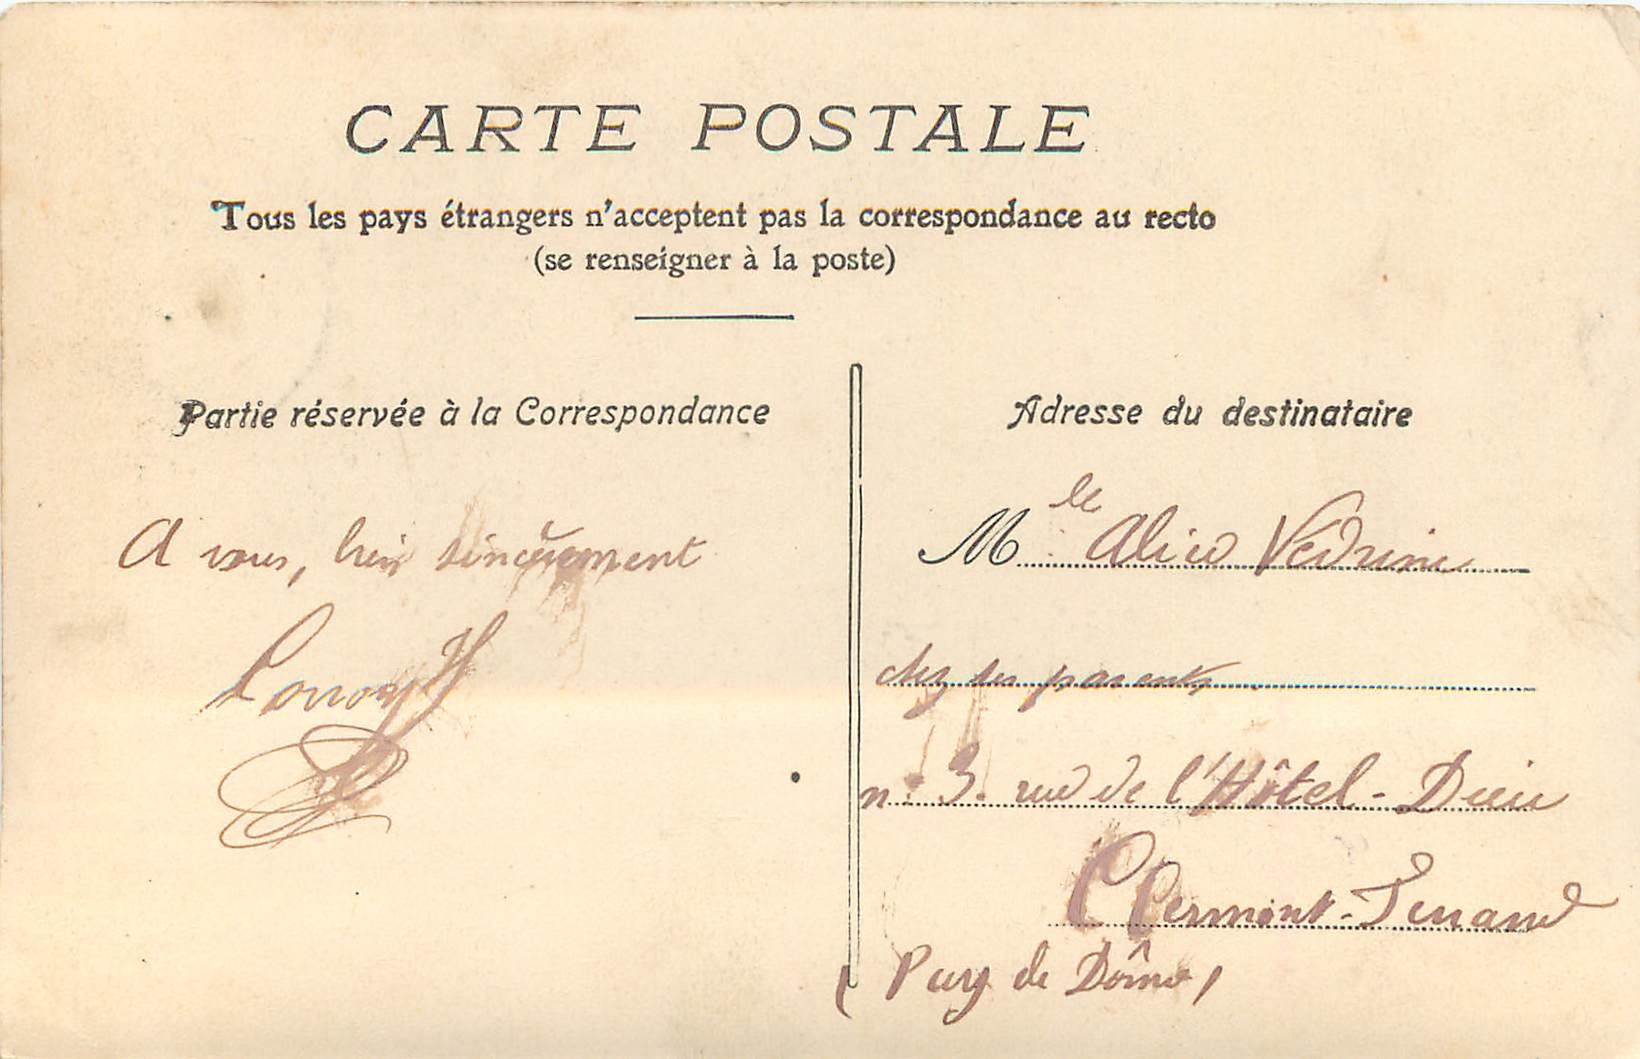 CARTE POSTALE
Tous les pays étrangers n'acceptent pas la correspondance au recto
(se renseigner à la poste)
Partie réservée à la Correspondance
A vous, bien sincèrement
Adresse du destinataire
Mlle Alice Védrine
chez ses parents
n° 3. rue de l'Hôtel-Dieu
Clermont-Ferrand
(Puy de Dôme)